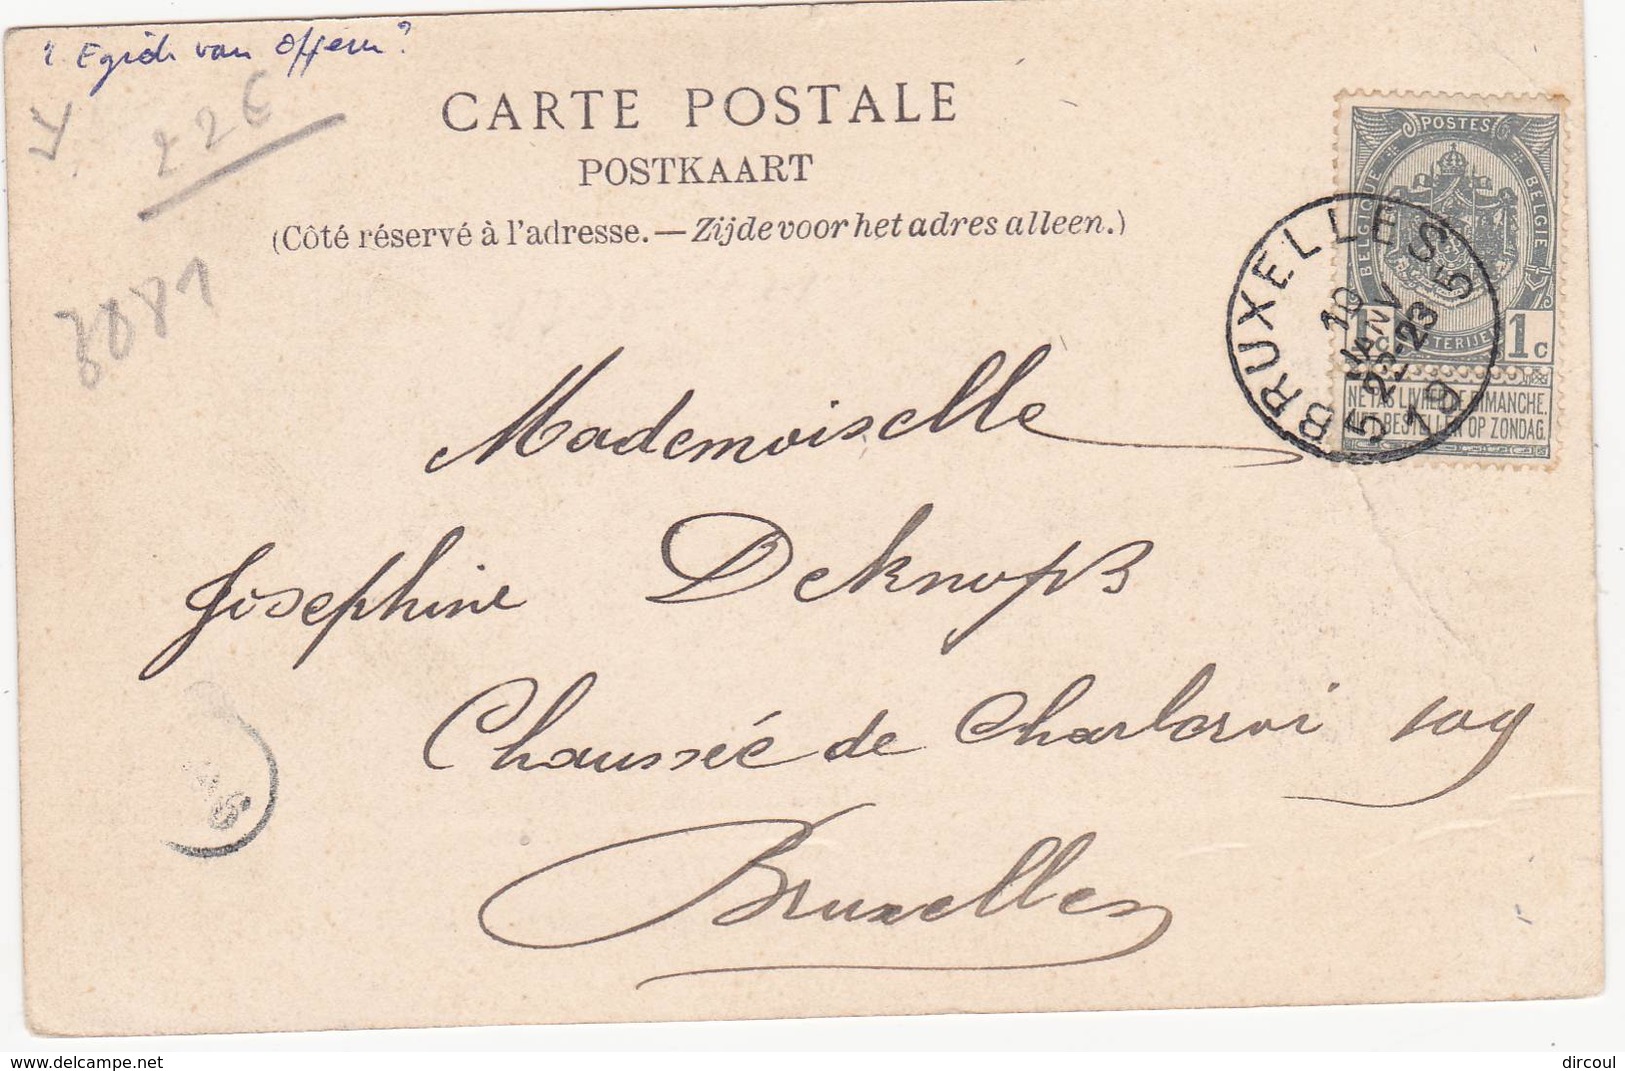 ? Egide van Offem?
22€
8081
CARTE POSTALE
POSTKAART
(Côté réservé à l'adresse.—Zijde voor het adres alleen.)
POSTES
BELGIQUE BELGIË
1c 1c
NE PAS LIVRER LE DIMANCHE.
NIET BESTELLEN OP ZONDAG.
BRUXELLES 5
10
JANV
5 22-23
19
Mademoiselle
Josephine Deknops
Chaussée de Charleroi 109
Bruxelles
www.delcampe.net
dircoul